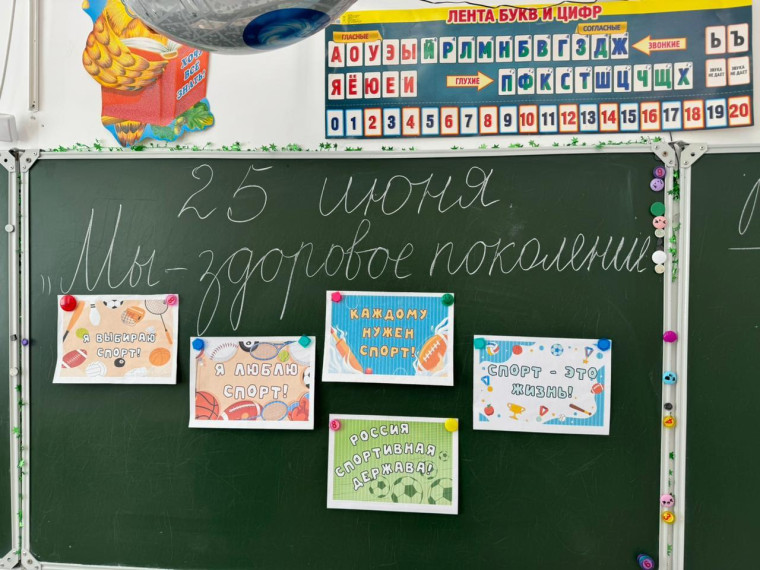 ЛЕНТА БУКВ И ЦИФР
ГЛАСНЫЕ
СОГЛАСНЫЕ
А О У Э Ы Й Р Л М Н Б В Г З Д Ж
ЗВОНКИЕ
Ь Ъ
Я Ё Ю Е И
ГЛУХИЕ
П Ф К С Т Ш Ц Ч Щ Х
ЗВУКА НЕ ДАЕТ
ЗВУКА НЕ ДАЕТ
0 1 2 3 4 5 6 7 8 9 10 11 12 13 14 15 16 17 18 19 20
ХОЧУ
ВСЁ
ЗНАТЬ!
25 июня
„Мы - здоровое поколение
Я ВЫБИРАЮ
СПОРТ!
Я ЛЮБЛЮ
СПОРТ!
КАЖДОМУ
НУЖЕН
СПОРТ!
СПОРТ - ЭТО
ЖИЗНЬ!
РОССИЯ
СПОРТИВНАЯ
ДЕРЖАВА!